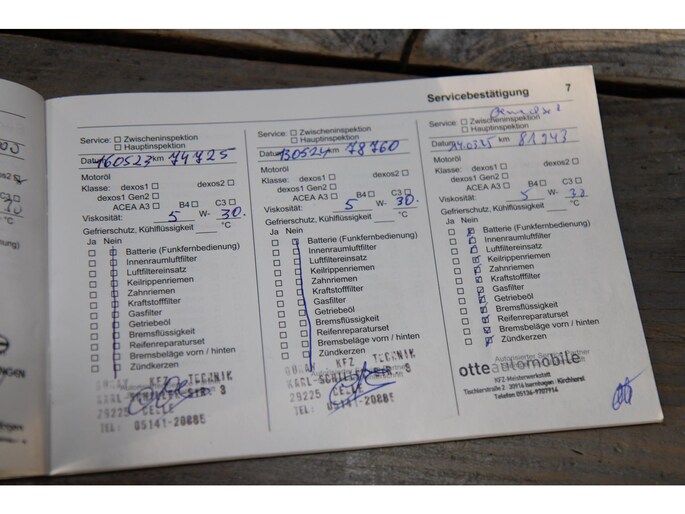 Servicebestätigung 7
Service: ☐ Zwischeninspektion
☐ Hauptinspektion
Datum 160523 km 74725
Motoröl
Klasse: dexos1 ☐ dexos2 ☐
dexos1 Gen2 ☐
ACEA A3 ☐ B4 ☐ C3 ☐
Viskosität: 5 W- 30.
Gefrierschutz, Kühlflüssigkeit ____ °C
Ja Nein
Batterie (Funkfernbedienung)
Innenraumluftfilter
Luftfiltereinsatz
Keilrippenriemen
Zahnriemen
Kraftstofffilter
Gasfilter
Getriebeöl
Bremsflüssigkeit
Reifenreparaturset
Bremsbeläge vorn / hinten
Zündkerzen
KFZ TECHNIK
KARL-SCHILLER-STR 3
29225 CELLE
TEL: 05141-2088E
Service: ☐ Zwischeninspektion
☐ Hauptinspektion
Datum 130524 km 78760
Motoröl
Klasse: dexos1 ☐ dexos2 ☐
dexos1 Gen2 ☐
ACEA A3 ☐ B4 ☐ C3 ☐
Viskosität: 5 W- 30.
Gefrierschutz, Kühlflüssigkeit ____ °C
Ja Nein
Batterie (Funkfernbedienung)
Innenraumluftfilter
Luftfiltereinsatz
Keilrippenriemen
Zahnriemen
Kraftstofffilter
Gasfilter
Getriebeöl
Bremsflüssigkeit
Reifenreparaturset
Bremsbeläge vorn / hinten
Zündkerzen
KFZ TECHNIK
KARL-SCHILLER-STR 3
29225 CELLE
TEL: 05141-2088E
Service: ☐ Zwischeninspektion
☐ Hauptinspektion
Datum km 81943
Motoröl
Klasse: dexos1 ☐ dexos2 ☐
dexos1 Gen2 ☐
ACEA A3 ☐ B4 ☐ C3 ☐
Viskosität: 5 W- 30
Gefrierschutz, Kühlflüssigkeit ____ °C
Ja Nein
Batterie (Funkfernbedienung)
Innenraumluftfilter
Luftfiltereinsatz
Keilrippenriemen
Zahnriemen
Kraftstofffilter
Gasfilter
Getriebeöl
Bremsflüssigkeit
Reifenreparaturset
Bremsbeläge vorn / hinten
Zündkerzen
Autorisierter Service Partner
otteautomobile
KFZ-Meisterwerkstatt
Tischlerstraße 2 · 30916 Isernhagen / Kirchhorst
Telefon 05136-9707914